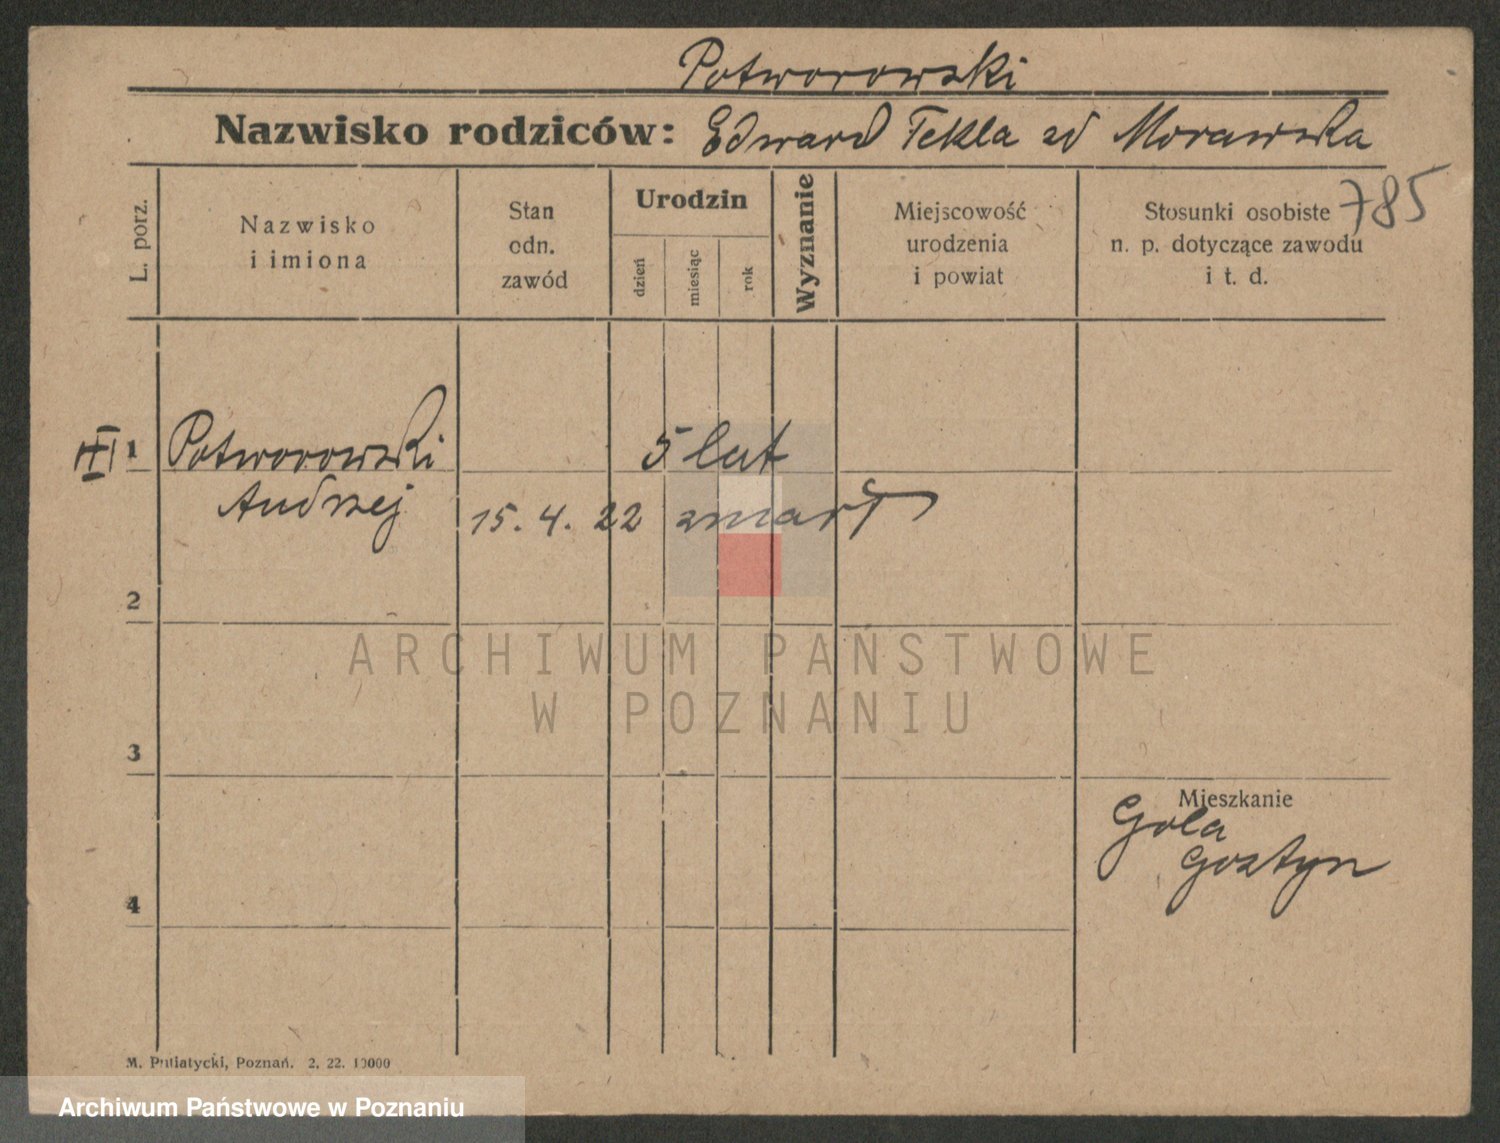 Potworowski
Nazwisko rodziców: Edward Tekla zd Morawska
785
L. porz.
Nazwisko
i imiona
Stan
odn.
zawód
Urodzin
dzień
miesiąc
rok
Wyznanie
Miejscowość
urodzenia
i powiat
Stosunki osobiste
n. p. dotyczące zawodu
i t. d.
1 Potworowski 5 lat
Andrzej 15. 4. 22 zmarł
2
ARCHIWUM PAŃSTWOWE
W POZNANIU
3
Mieszkanie
Gola
Gostyn
4
M. Putiatycki, Poznań. 2. 22. 10000
Archiwum Państwowe w Poznaniu